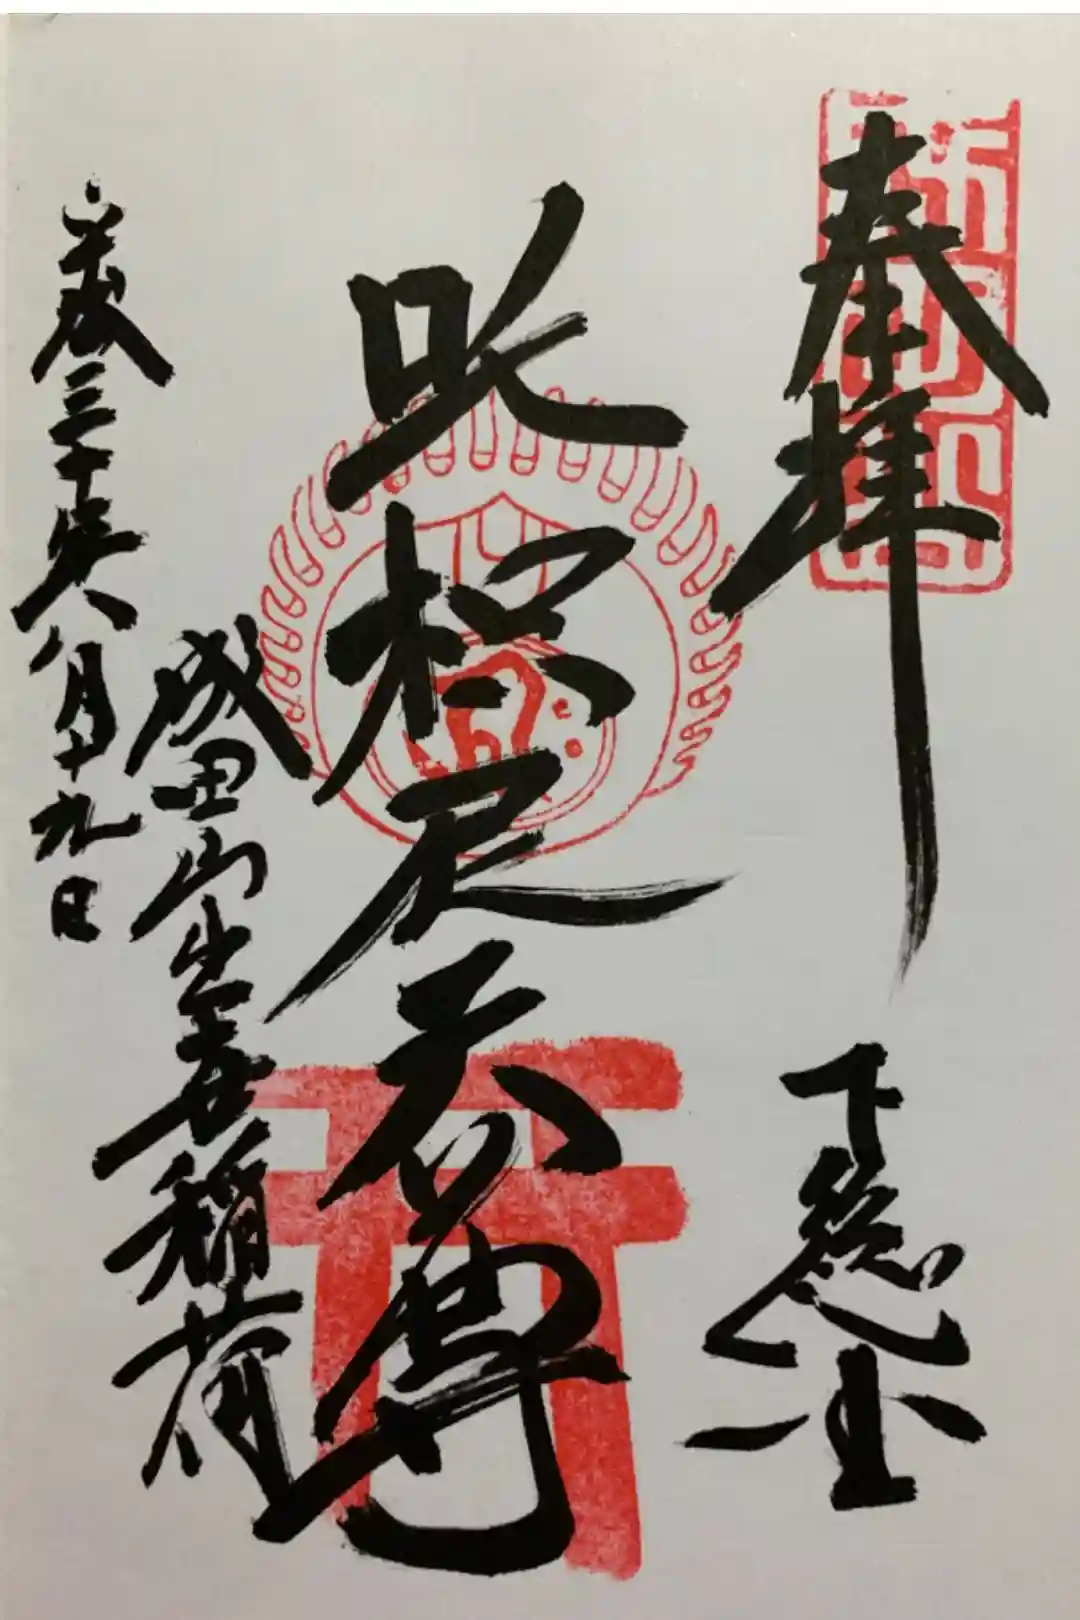 奉拝
下総
吒枳尼天尊
成田山出世稲荷
平成三十年八月十九日